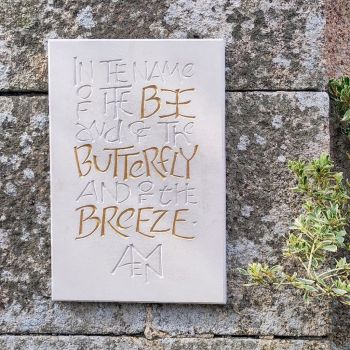 IN THE NAME
OF THE BEE
and OF THE
BUTTERFLY
AND OF the
BREEZE.
AMEN